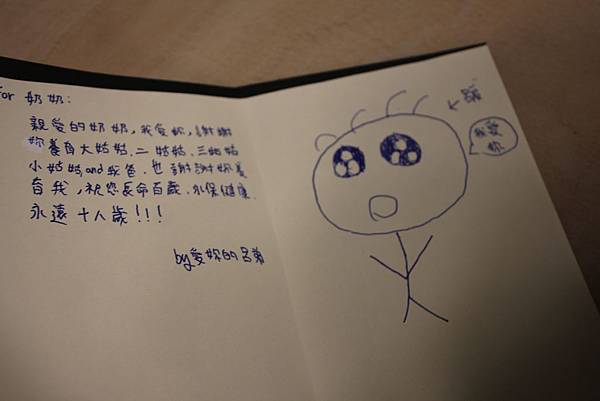 for 奶奶：
親愛的奶奶，我愛妳，謝謝
妳養育大姑姑、二姑姑、三姑姑
小姑姑and我爸，也謝謝妳養
育我，祝您長命百歲、永保健康
永遠十八歲！！！
by愛妳的呂
我愛
你